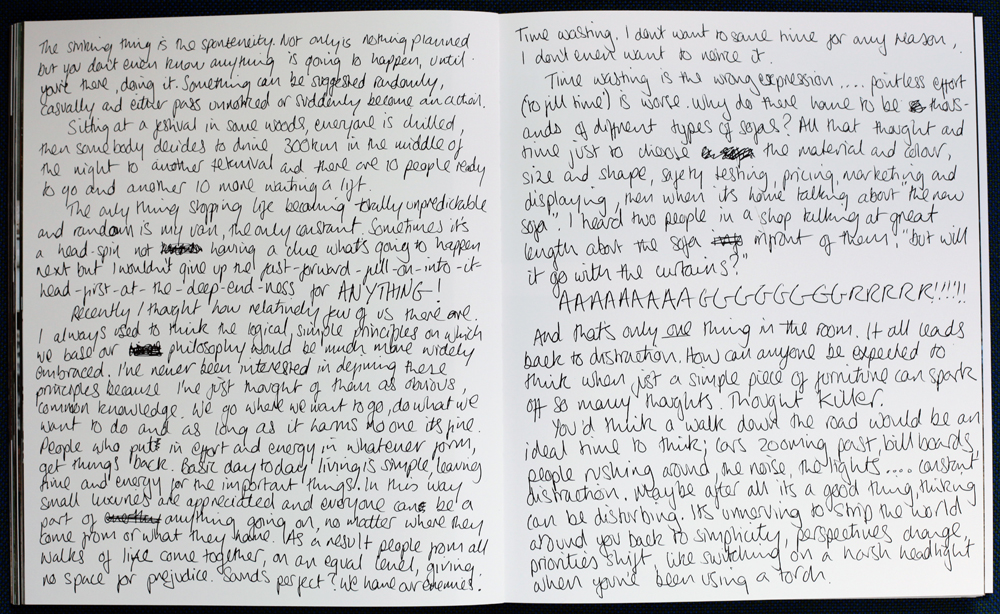 The striking thing is the sponteneity. Not only is nothing planned
but you don't even know anything is going to happen, until
you're there, doing it. Something can be suggested randomly,
casually and either pass unnoticed or suddenly become an action.
Sitting at a festival in some woods, everyone is chilled,
then somebody decides to drive 300km in the middle of
the night to another teknival and there are 10 people ready
to go and another 10 more wanting a lift.
The only thing stopping life becoming totally unpredictable
and random is my van, the only constant. Sometimes it's
a head-spin not having a clue what's going to happen
next but I wouldn't give up the fast-forward-full-on-into-it-
head-first-at-the-deep-end-ness for ANYTHING!
Recently I thought how relatively few of us there are.
I always used to think the logical, simple principles on which
we base our philosophy would be much more widely
embraced. I've never been interested in defining these
principles because I've just thought of them as obvious,
common knowledge. We go where we want to go, do what we
want to do and as long as it harms no one its fine.
People who put in effort and energy in whatever form,
get things back. Basic day to day living is simple, leaving
time and energy for the important things. In this way
small luxuries are appreciated and everyone can be a
part of anything going on, no matter where they
come from or what they have. As a result people from all
walks of life come together, on an equal level, giving
no space for prejudice. Sounds perfect? We have our enemies.
Time wasting. I don't want to save time for any reason,
I don't even want to notice it.
Time wasting is the wrong expression.... pointless effort
(to fill time) is worse. Why do there have to be thous-
ands of different types of sofas? All that thought and
time just to choose the material and colour,
size and shape, safety testing, pricing, marketing and
displaying, then when its home talking about "the new
sofa". I heard two people in a shop talking at great
length about the sofa infront of them. "but will
it go with the curtains?"
AAAAAAAAGGGGGGGGRRRRR!!!!!
And thats only one thing in the room. It all leads
back to distraction. How can anyone be expected to
think when just a simple piece of furniture can spark
off so many thoughts. Thought Killer.
You'd think a walk down the road would be an
ideal time to think; cars zooming past, bill boards,
people rushing around, the noise, the lights.... constant
distraction. Maybe after all its a good thing, thinking
can be disturbing. Its unnerving to strip the world
around you back to simplicity, perspectives change,
priorities shift, like switching on a harsh headlight
when you've been using a torch.